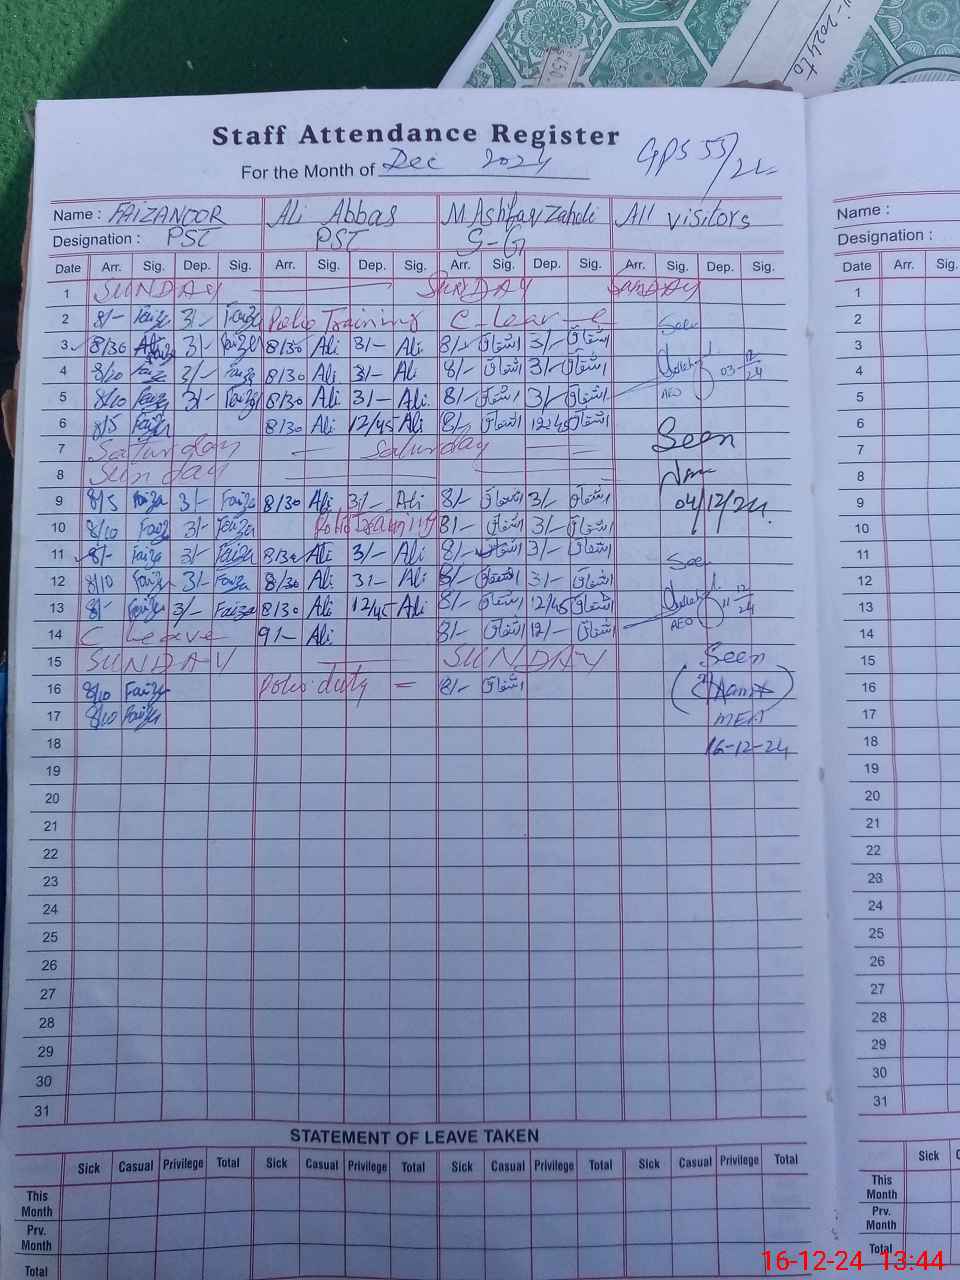 Staff Attendance Register
For the Month of Dec 2024
GPS 55/2L
Name : FAIZANOOR Ali Abbas M Ashfaq Zahdi All visitors
Designation : PST PST S-G
Date Arr. Sig. Dep. Sig. Arr. Sig. Dep. Sig. Arr. Sig. Dep. Sig. Arr. Sig. Dep. Sig.
1 SUNDAY SUNDAY SUNDAY
2 8/- Faiza 3/- Faiza Polio Training C-leave Seen
3 8/30 Faiza 3/- Faiza 8/30 Ali 3/- Ali 8/- اشفاق 3/- اشفاق
4 8/20 Faiza 3/- Faiza 8/30 Ali 3/- Ali 8/- اشفاق 3/- اشفاق 03-12/24
5 8/10 Faiza 3/- Faiza 8/30 Ali 3/- Ali 8/- اشفاق 3/- اشفاق AEO
6 8/5 Faiza 8/30 Ali 12/45 Ali 8/- اشفاق 12-45 اشفاق
7 Saturday — Saturday — Seen
8 Sunday
9 8/5 Faiza 3/- Faiza 8/30 Ali 3/- Ali 8/- اشفاق 3/- اشفاق 04/12/24.
10 8/10 Faiza 3/- Faiza Polio Training 8/- اشفاق 3/- اشفاق
11 8/- Faiza 3/- Faiza 8/30 Ali 3/- Ali 8/- اشفاق 3/- اشفاق Seen
12 8/10 Faiza 3/- Faiza 8/30 Ali 3/- Ali 8/- اشفاق 3/- اشفاق
13 8/- Faiza 3/- Faiza 8/30 Ali 12/45 Ali 8/- اشفاق 12/45 اشفاق 11-12/24
14 C leave 9/- Ali 8/- اشفاق 12/- اشفاق AEO
15 SUNDAY — SUNDAY Seen
16 8/10 Faiza Polio duty = 8/- اشفاق
17 8/10 Faiza MEA
18 16-12-24
19
20
21
22
23
24
25
26
27
28
29
30
31
STATEMENT OF LEAVE TAKEN
Sick Casual Privilege Total Sick Casual Privilege Total Sick Casual Privilege Total Sick Casual Privilege Total
This Month
Prv. Month
Total
Name :
Designation :
Date Arr. Sig.
1
2
3
4
5
6
7
8
9
10
11
12
13
14
15
16
17
18
19
20
21
22
23
24
25
26
27
28
29
30
31
Sick
This Month
Prv. Month
Total
16-12-24 13:44